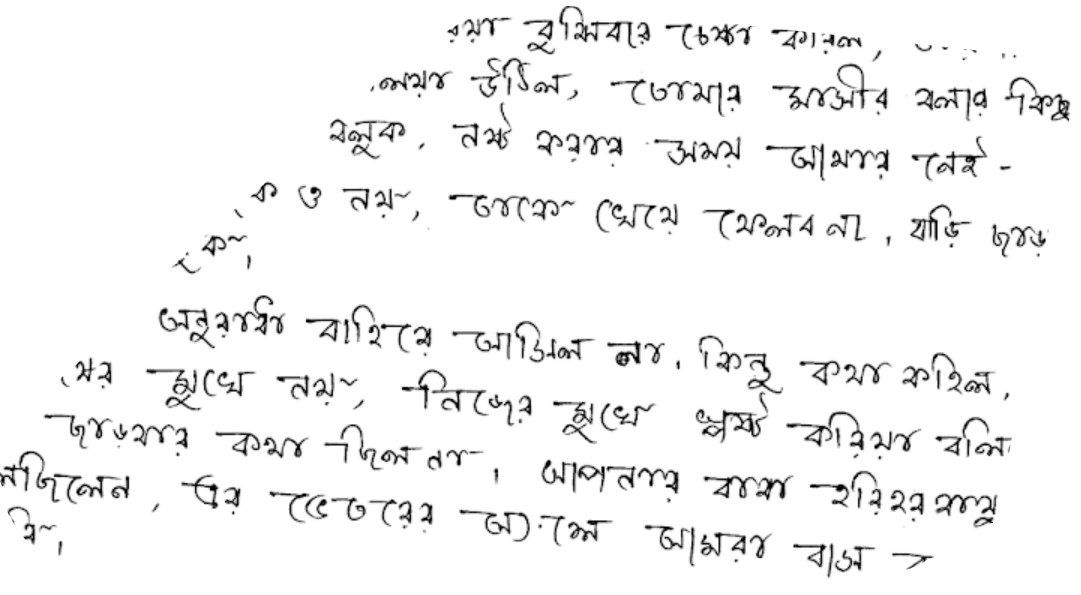 রয়া বুঝিবার চেষ্টা করিল,
লয়া উঠিল, তোমার মাসীর বলার কিছু
বলুক, নষ্ট করবার সময় আমার নেই -
ক ও নয়, তাকে খেয়ে ফেলব না, বাড়ি ছাড়
ক,
অনুরাধা বাহিরে আসিল না, কিন্তু কথা কহিল,
মুখে নয়, নিজের মুখে স্পষ্ট করিয়া বলি
ছাড়বার কথা ছিল না, আপনার বাবা হরিহরবাবু
লছিলেন, এর ভেতরের অংশে আমরা বাস